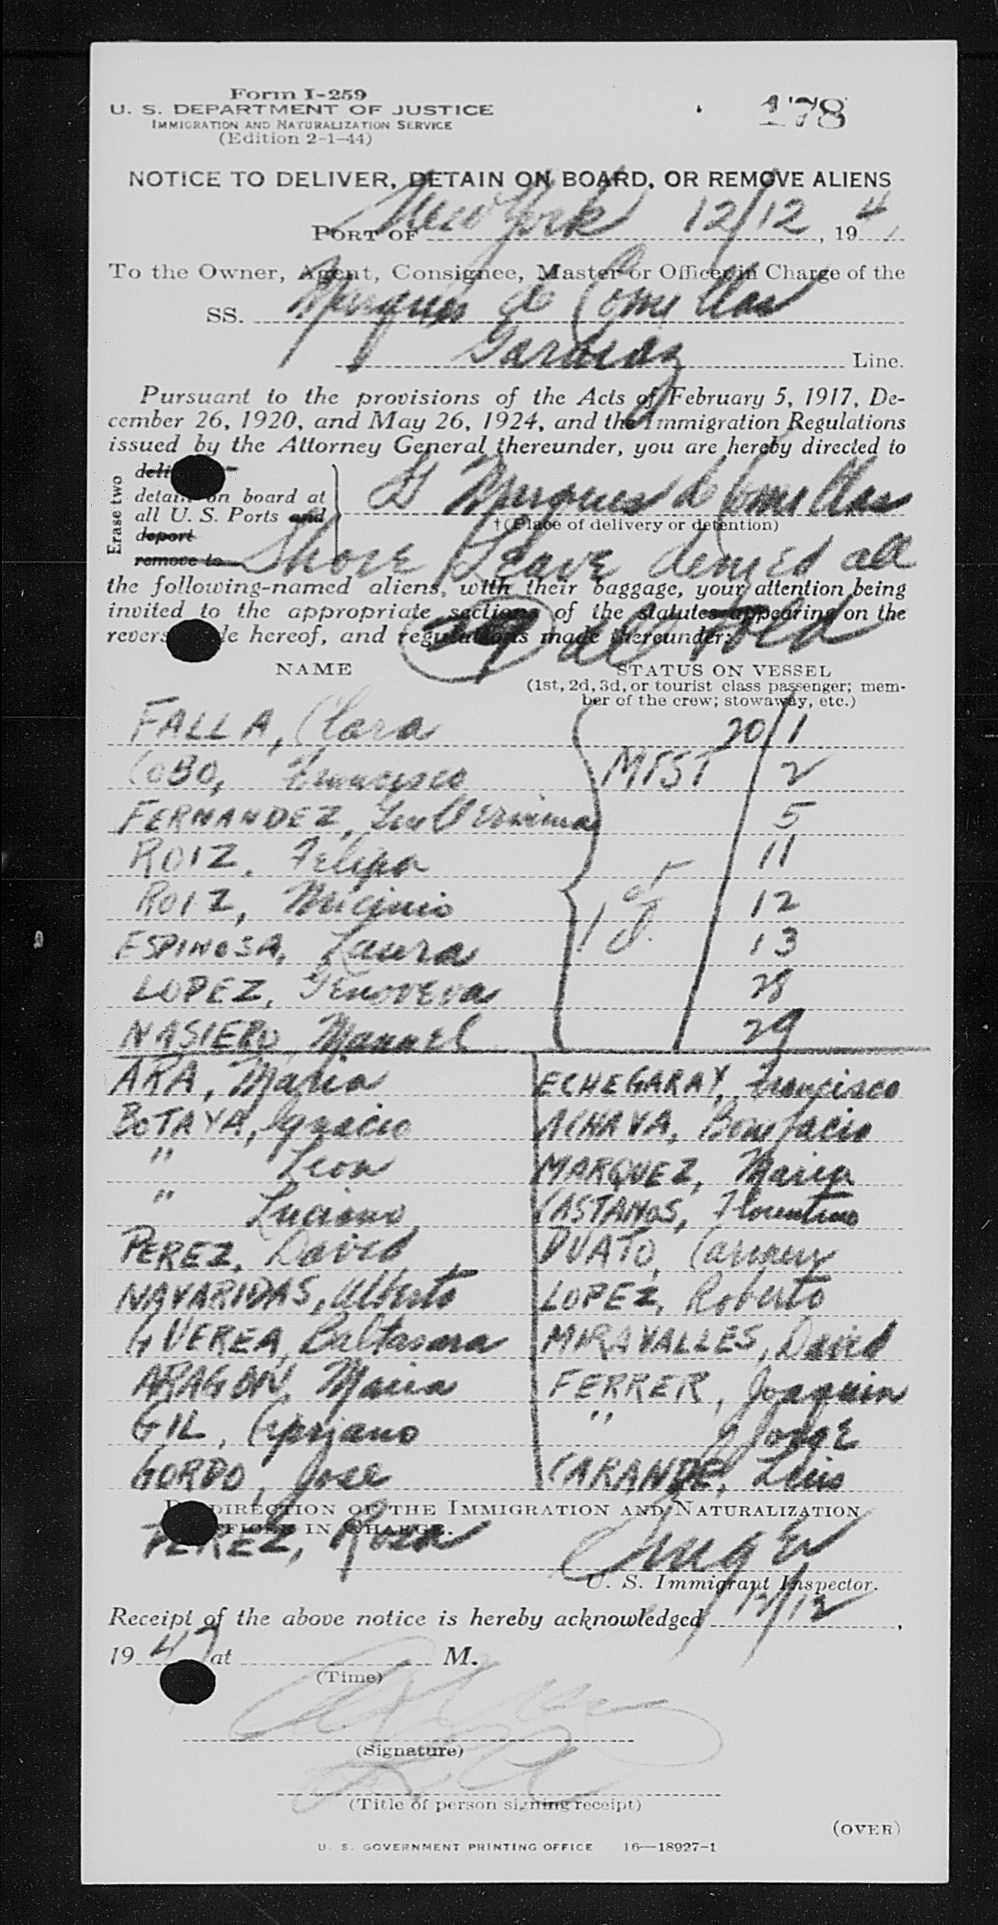 Form I-259
U. S. DEPARTMENT OF JUSTICE
IMMIGRATION AND NATURALIZATION SERVICE
(Edition 2-1-44)
178
NOTICE TO DELIVER, DETAIN ON BOARD, OR REMOVE ALIENS
PORT OF New York 12/12, 194
To the Owner, Agent, Consignee, Master or Officer in Charge of the
SS. Marques de Comillas
Garcia Line.
Pursuant to the provisions of the Acts of February 5, 1917, De-
cember 26, 1920, and May 26, 1924, and the Immigration Regulations
issued by the Attorney General thereunder, you are hereby directed to
Erase two
detain on board at
all U. S. Ports and
deport
remove to
Marques de Comillas
†(Place of delivery or detention)
Shore Leave denied all
the following-named aliens, with their baggage, your attention being
invited to the appropriate sections of the statutes appearing on the
reverse side hereof, and regulations made thereunder:
NAME
STATUS ON VESSEL
(1st, 2d, 3d, or tourist class passenger; mem-
ber of the crew; stowaway, etc.)
FALLA, Clara 20/1
COBO, Francisco MFST 2
FERNANDEZ, Guillermina 5
ROIZ, Felipa 11
ROIZ, 12
ESPINOSA, Laura 13
LOPEZ, Genoveva 28
NASIERO Manuel 29
ARA, Maria ECHEGARAY, Francisco
BOTAYA, Ignacio ACHAVA, Bonifacio
" Leon MARQUEZ, Maria
" Luciano CASTANOS, Florentino
PEREZ, David DUATO, Carmen
NAVARIDAS, Alberto LOPEZ, Roberto
GUEREA, Baltasara MIRAVALLES, David
ARAGON, Maria FERRER, Joaquin
GIL, Cipriano " Jorge
GORDO, Jose CARANDE, Luis
BY DIRECTION OF THE IMMIGRATION AND NATURALIZATION
OFFICER IN CHARGE.
PEREZ, Rosa
U. S. Immigrant Inspector.
Receipt of the above notice is hereby acknowledged 12/12,
1947 at M.
(Time)
(Signature)
(Title of person signing receipt)
(OVER)
U. S. GOVERNMENT PRINTING OFFICE 16—18927-1